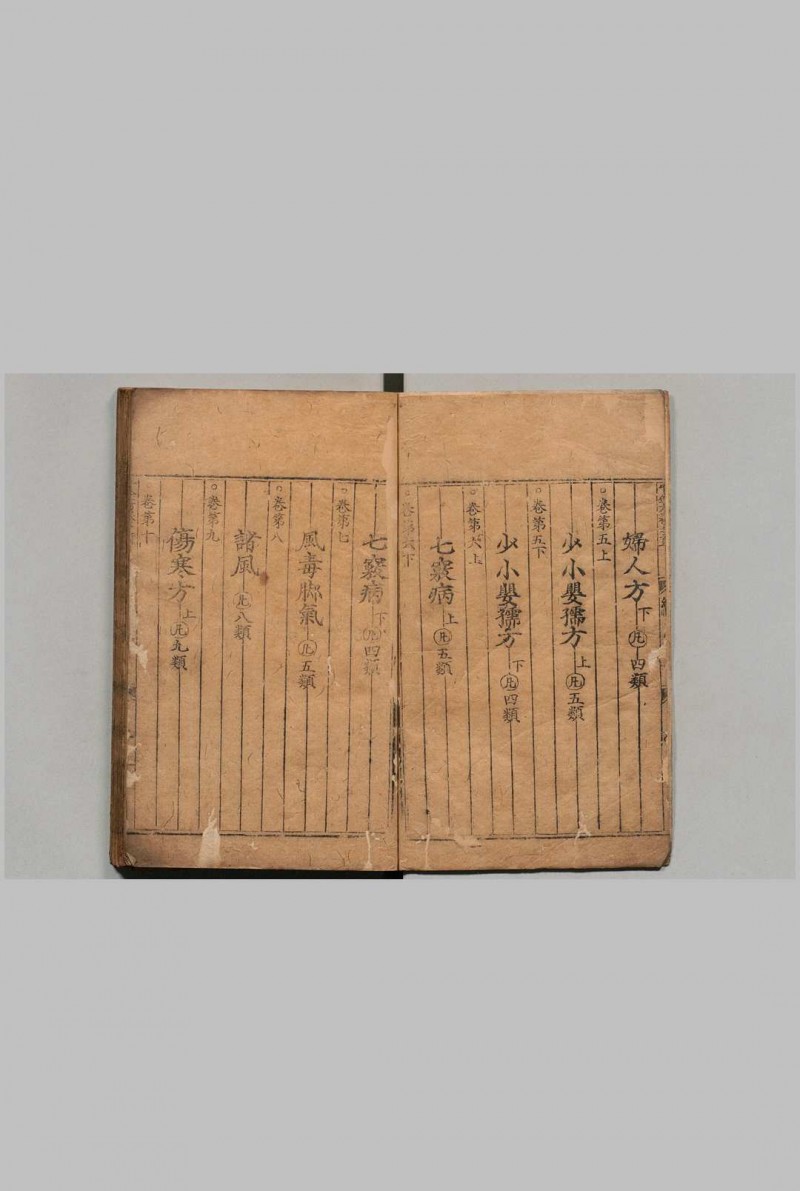 婦人方下凡四類
卷第五上
少小嬰孺方上凡五類
卷第五下
少小嬰孺方下凡四類
卷第六上
七竅病上凡五類
卷第六下
七竅病下凡四類
卷第七
風毒脚氣凡五類
卷第八
諸風凡八類
卷第九
傷寒方上凡九類
卷第十